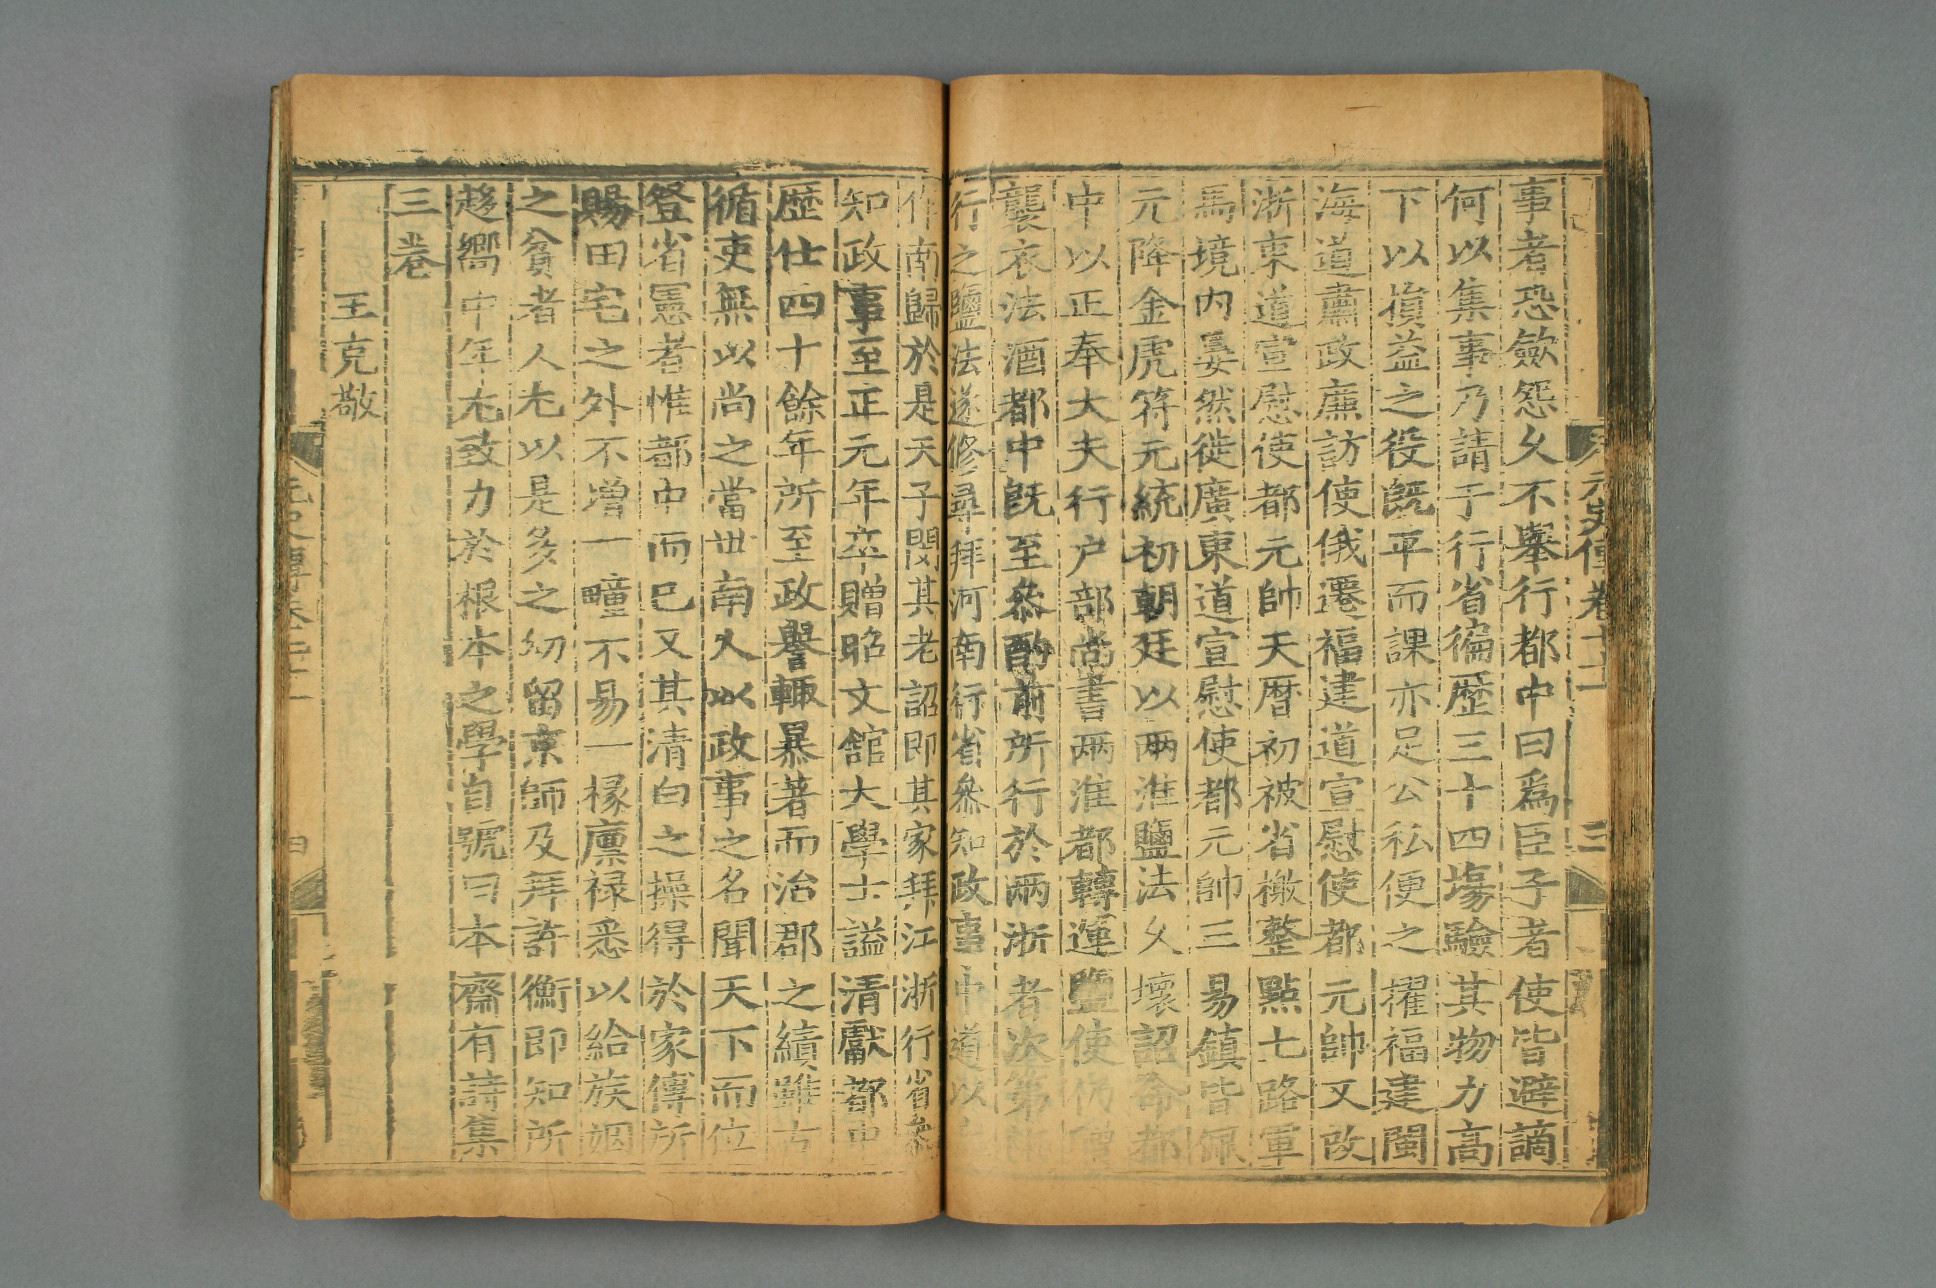 事者恐歛怨久不舉行都中曰爲臣子者使皆避謫
何以集事乃請于行省徧歷三十四塲驗其物力高
下以損益之役既平而課亦足公私便之擢福建閩
海道肅政廉訪使俄遷福建道宣慰使都元帥又改
浙東道宣慰使都元帥天曆初被省檄整點七路軍
馬境内晏然徙廣東道宣慰使都元帥三易鎮皆佩
元降金虎符元統初朝廷以兩淮鹽法久壞詔命都
中以正奉大夫行户部尚書兩淮都轉運鹽使仍
襲衣法酒都中既至叅酌前所行於兩浙者次第
行之鹽法遂修尋拜河南行省叅知政事中道以
作南歸於是天子閔其老詔即其家拜江浙行省叅
知政事至正元年卒贈昭文舘大學士謚清獻都中
歷仕四十餘年所至政譽輒暴著而治郡之績雖古
循吏無以尚之當世南人以政事之名聞天下而位
登省憲者惟都中而已又其清白之操得於家傳所
賜田宅之外不增一疃不易一椽廩禄悉以給族姻
之貧者人尤以是多之幼留京師及拜許衡即知所
趍嚮中年尤致力於根本之學自號曰本齋有詩集
三卷
王克敬
元史傳卷
三
四